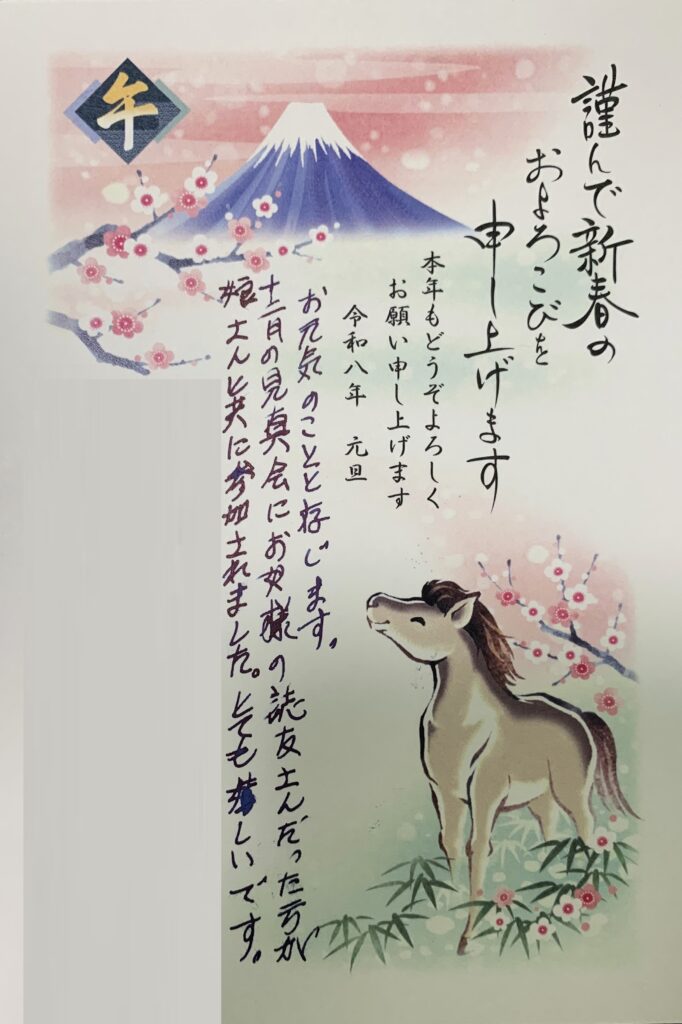 午
謹んで新春の
およろこびを
申し上げます
本年もどうぞよろしく
お願い申し上げます
令和八年 元旦
お元気のことと存じます。
十二月の見真会にお母様の誌友さんだった方が
娘さんと共に参加されました。とても嬉しいです。